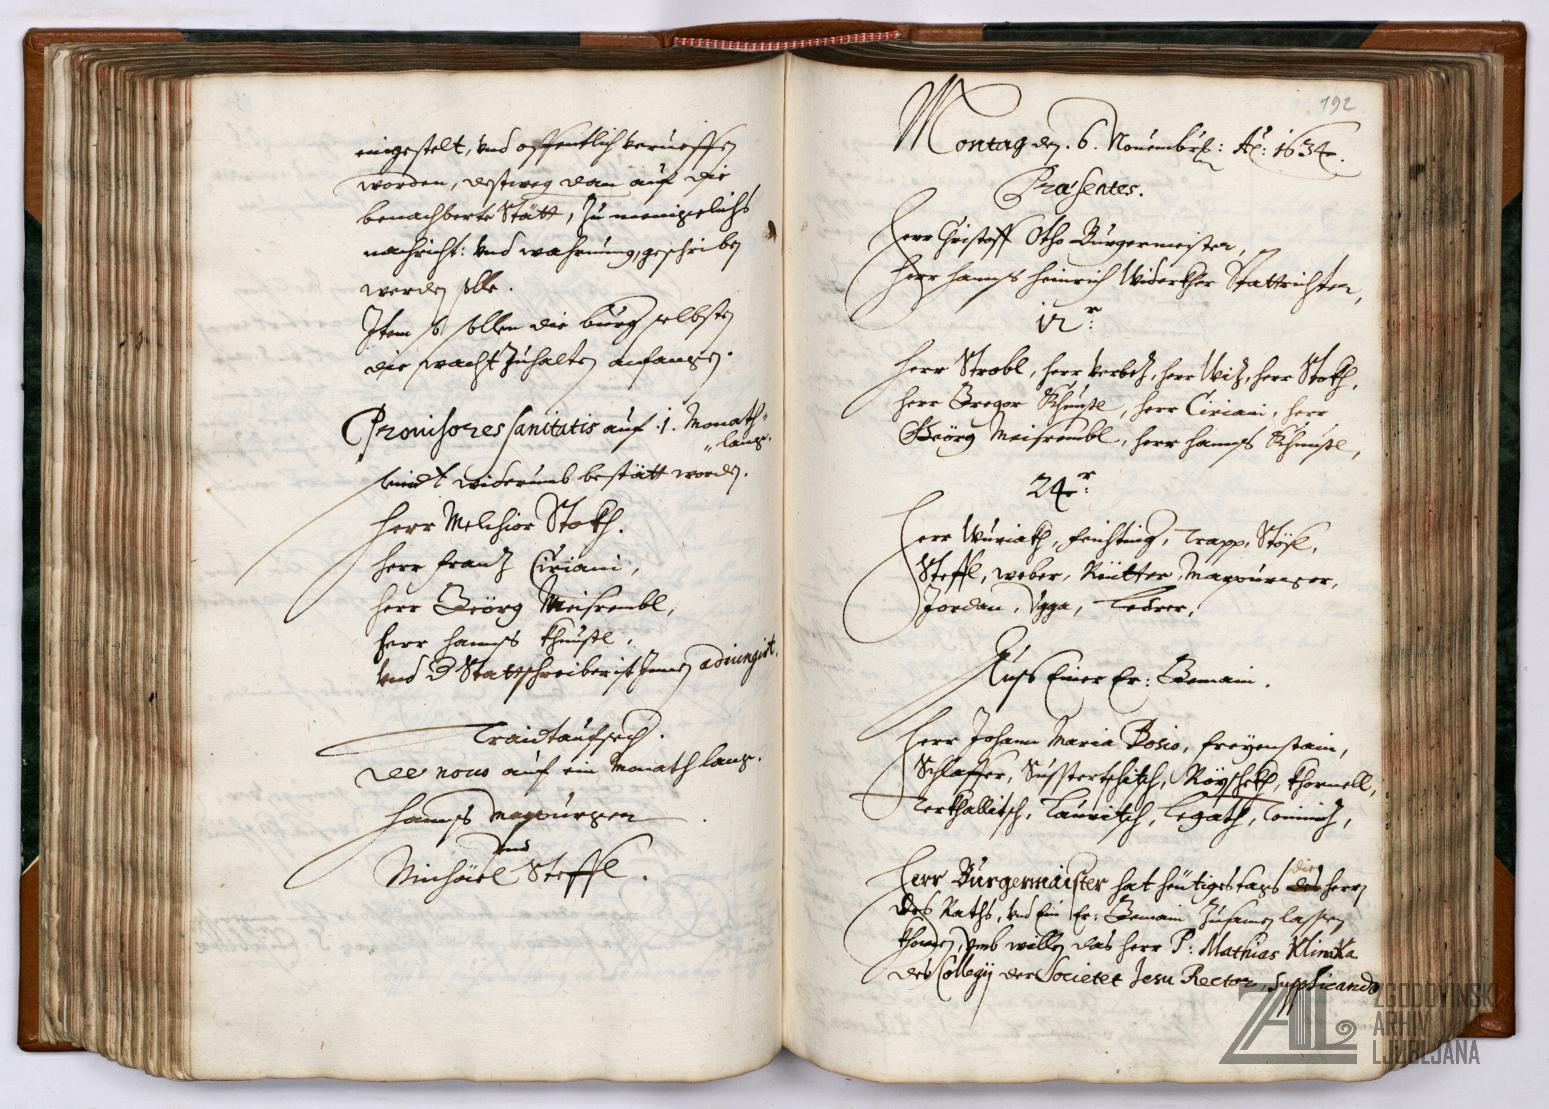 eingestelt, und offentlich verueffen
worden, destweg dan auf die
benachberte Stätt, zu menigelichs
nachricht: und wahrnung, geschriben
werden solle.
Item so sollen die burg selbsten
die wacht zuhalten anfangen.
Prouisores sanitatis auf .1. Monath
lang.
seindt widerumb bestätt worden.
Herr Melchior Stokh.
Herr Frantz Ciriani,
Herr Geörg Meisrembl,
Herr Hanns
und d Stattschreiber ist Inen adiungirt.
Traidtaufseh.
de nouo auf ein Monath lang.
Hanns Marpurger
und
Michäel Steffl.
192
Montag den .6. Nouembris: Aº: 1634.
Præsentes.
Herr Christoff Otho Burgermeister,
Herr Hanns Heinrich Widerkher Stattrichter,
12.r
Herr Strobl, Herr Verbetz, Herr Wiz, Herr Stokh,
Herr Gregor Herr Ciriani, Herr
Geörg Meisrembl, Herr Hanns
24.r
Herr Wuriath, Feichting, Trapp,
Steffl, Weber, Reütter, Marpurger,
Jordan, Ugga, Ledrer,
Auss Einer Er: Gemain.
Herr Johann Maria Bosio, Freyenstain,
Schlaffer,
Herr Burgermaister hat heütiges tags die herrn
des Raths, und Ein Er: Gemain zusamen lassen
khomen, umb willen das Herr P: Mathias Klimka
des Collegij der Societet Jesu Rector, supplicando
ZAL
ZGODOVINSKI
ARHIV
LJUBLJANA